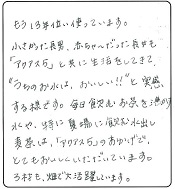 もう13年位い使っています。
小さかった長男、赤ちゃんだった長女も
「アクアス5」と共に生活をしてきて、
"うちのお水は、おいしい!!"と実感
する様です。毎日飲むお茶を沸かす
水や、特に夏場に飲む水出し
麦茶は、「アクアス5」のおかげで、
とてもおいしくいただいています。
3枚も、畑で大活躍しています。